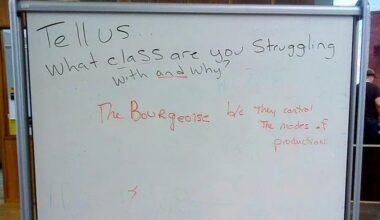 Tell us...
What class are you struggling
with and why?
The Bourgeoise b/c They control
The modes of
production.